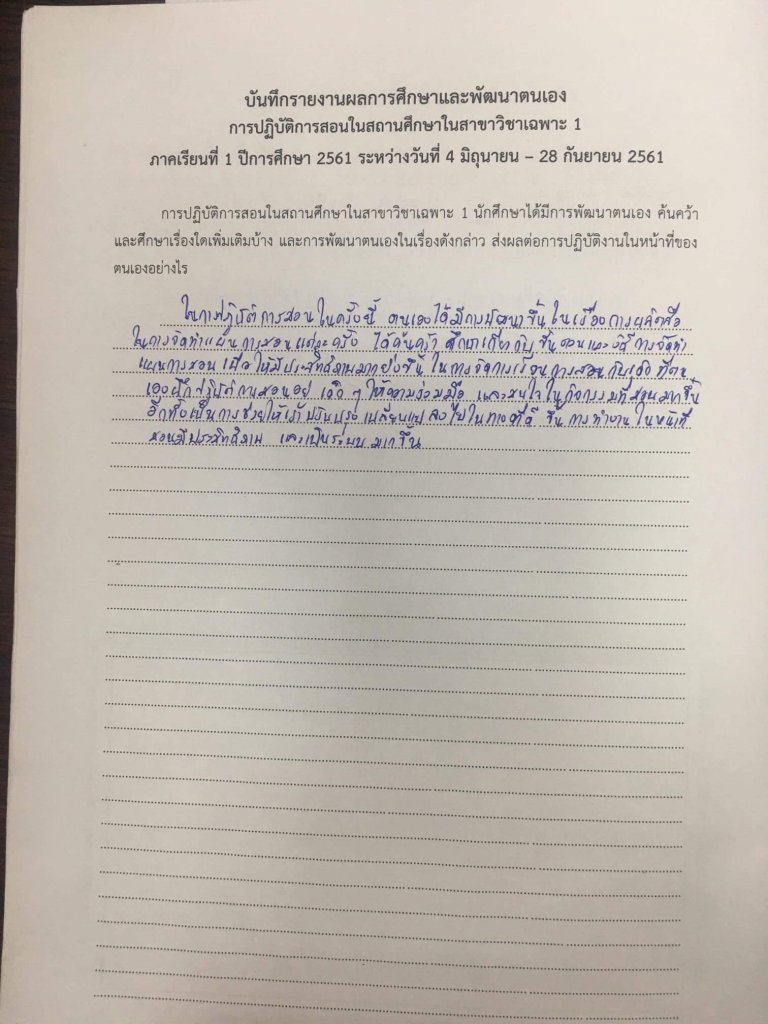 บันทึกรายงานผลการศึกษาและพัฒนาตนเอง
การปฏิบัติการสอนในสถานศึกษาในสาขาวิชาเฉพาะ 1
ภาคเรียนที่ 1 ปีการศึกษา 2561 ระหว่างวันที่ 4 มิถุนายน – 28 กันยายน 2561
การปฏิบัติการสอนในสถานศึกษาในสาขาวิชาเฉพาะ 1 นักศึกษาได้มีการพัฒนาตนเอง ค้นคว้า
และศึกษาเรื่องใดเพิ่มเติมบ้าง และการพัฒนาตนเองในเรื่องดังกล่าว ส่งผลต่อการปฏิบัติงานในหน้าที่ของ
ตนเองอย่างไร
ในการปฏิบัติการสอนในครั้งนี้ ตนเองได้มีการพัฒนาขึ้นในเรื่องการผลิตสื่อ
ในการจัดทำแผนการสอนแต่ละครั้ง ได้ค้นคว้า ศึกษาเกี่ยวกับขั้นตอนและวิธีการจัดทำ
แผนการสอน เพื่อให้มีประสิทธิภาพมากยิ่งขึ้น ในการจัดการเรียนการสอนกับเด็กที่ตน
เองฝึกปฏิบัติการสอนอยู่ เด็ก ๆ ให้ความร่วมมือ และสนใจในกิจกรรมที่สอนมากขึ้น
อีกทั้งเป็นการช่วยให้เราปรับปรุง เปลี่ยนแปลงไปในทางที่ดีขึ้น การทำงานในหน้าที่
สอนมีประสิทธิภาพ และเป็นระบบมากขึ้น